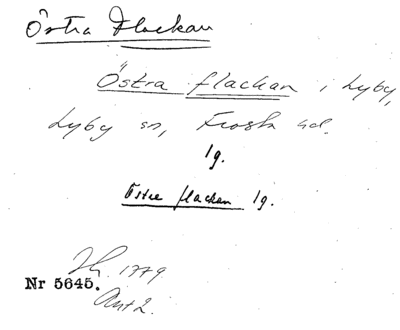 Östra Flackan
Östra flackan i Lyby,
Lyby sn, Frosta hd.
lg.
Östre flackan lg.
1779
Nr 5645.
Akt 2.